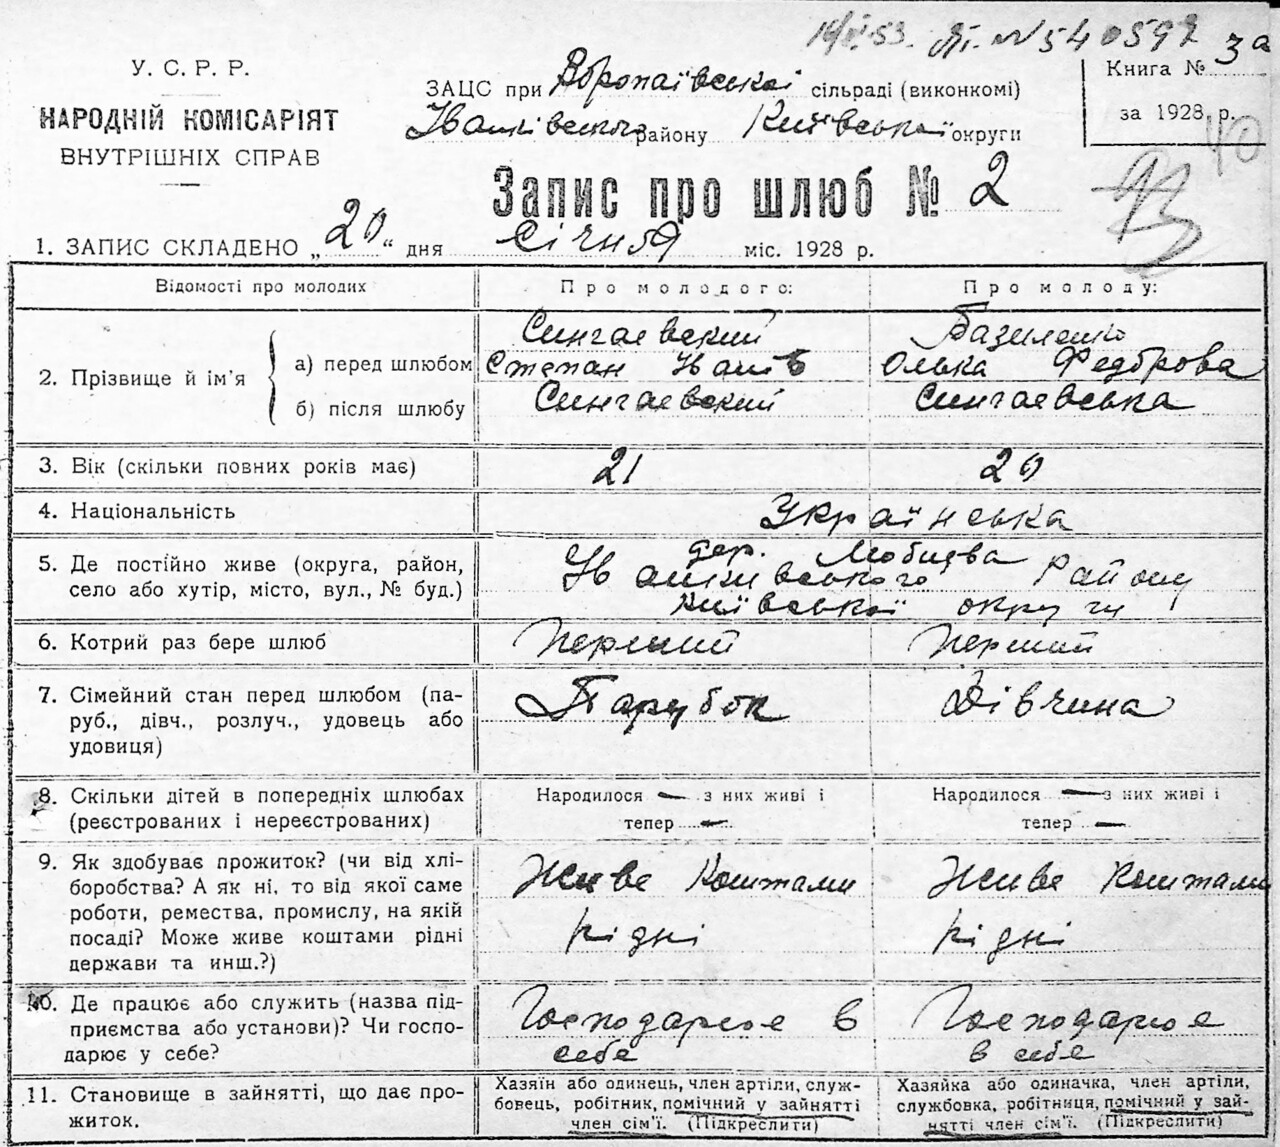 У. С. Р. Р.
НАРОДНІЙ КОМІСАРІЯТ
ВНУТРІШНІХ СПРАВ
ЗАЦС при Воропаївської сільраді (виконкомі)
Іванківського району Київської округи
Книга № 3а
за 1928 р.
40
Запис про шлюб № 2
1. ЗАПИС СКЛАДЕНО „20“ дня січня міс. 1928 р.
Відомості про молодих
Про молодого:
Про молоду:
2. Прізвище й ім'я
а) перед шлюбом
Сингаевский
Степан Іванів
Базиленко
Олька Федорова
б) після шлюбу
Сингаевский
Сингаевська
3. Вік (скільки повних років має)
21
20
4. Національність
Українська
5. Де постійно живе (округа, район,
село або хутір, місто, вул., № буд.)
дер.
Іванкивського Району
Київської округи
6. Котрий раз бере шлюб
Перший
Перший
7. Сімейний стан перед шлюбом (па-
руб., дівч., розлуч., удовець або
удовиця)
Парубок
Дівчина
8. Скільки дітей в попередніх шлюбах
(реєстрованих і нереєстрованих)
Народилося — з них живі і
тепер —
Народилося — з них живі і
тепер —
9. Як здобуває прожиток? (чи від хлі-
боробства? А як ні, то від якої саме
роботи, ремества, промислу, на якій
посаді? Може живе коштами рідні
держави та инш.?)
Живе Коштами
рідні
Живе Коштами
рідні
10. Де працює або служить (назва під-
приємства або установи)? Чи госпо-
дарює у себе?
Господарює в
себе
Господарює
в себе
11. Становище в зайнятті, що дає про-
житок.
Хазяїн або одинець, член артіли, служ-
бовець, робітник, помічний у зайнятті
член сім'ї. (Підкреслити)
Хазяйка або одиначка, член артіли,
службовка, робітниця, помічний у зай-
нятті член сім'ї. (Підкреслити)